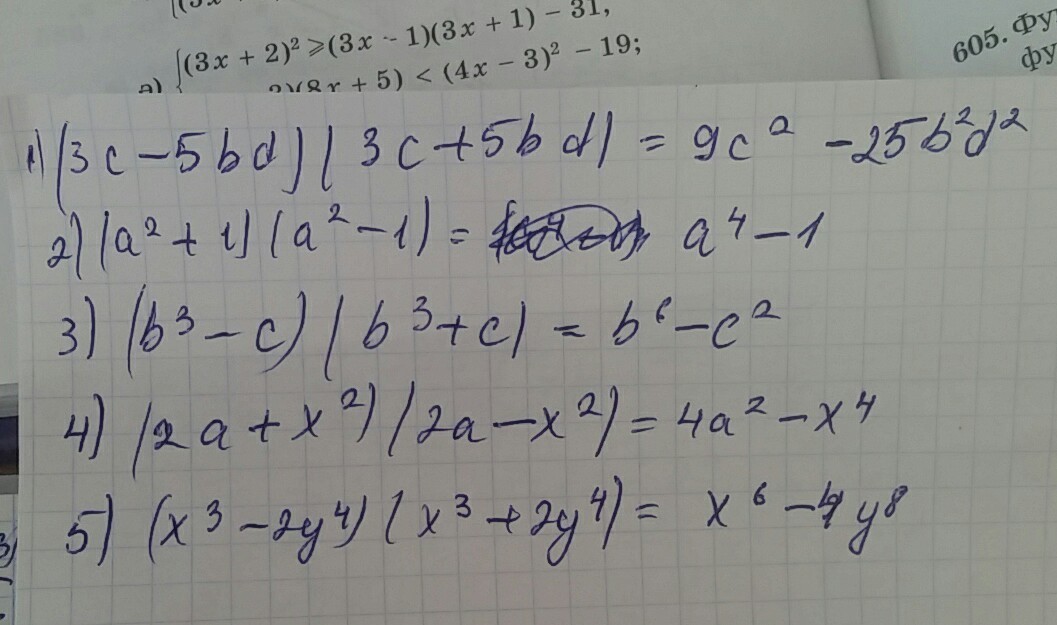 {(3x + 2)² ⩾ (3x - 1)(3x + 1) - 31,
(8x + 5) < (4x - 3)² - 19;
605. Фу
фу
1) (3c - 5bd)(3c + 5bd) = 9c² - 25b²d²
2) (a² + 1)(a² - 1) = a⁴ - 1
3) (b³ - c)(b³ + c) = b⁶ - c²
4) (2a + x²)(2a - x²) = 4a² - x⁴
5) (x³ - 2y⁴)(x³ + 2y⁴) = x⁶ - 4y⁸